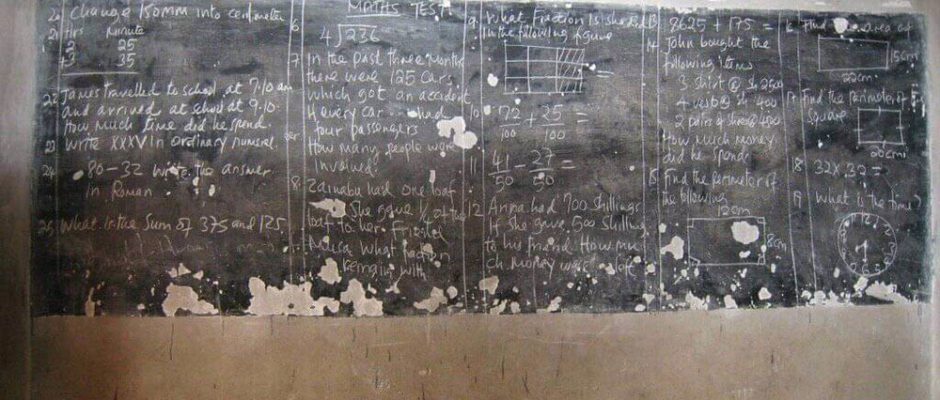 MATHS TEST
20 Change 150mm into centimeter
21 Hrs Minute
2 25
+3 35
22 James travelled to school at 7.10 am
and arrived at school at 9.10.
How much time did he spend
23 write XXXV in ordinary numeral.
24 80 – 32 write the answer
in Roman
25 What is the Sum of 375 and 125.
6
4√236
7 In the past three months
there were 125 cars
which got an accident
If every car had
four passengers
How many people were
involved.
8. Zainabu had one loaf
She gave 1/4 of the
loaf to her friend
what fraction
remaing with
9. What fraction is shaded
in the following figure
=
10 72/100 + 25/100 =
11 41/50 – 27/50 =
12 Anna had 700 shillings
If she gave 500 shilling
to his friend. How mu
ch money was left
13 8625 + 175 =
14 John bought the
following items
3 shirt @ sh 2500
4 vest @ sh 400
2 pairs of shoes @
How much money
did he spend
15 Find the perimeter of
the following
12cm
8cm
16 Find area of
15cm
22cm
17 Find the perimeter of
square
18 32 x 32 =
19 What is the time?